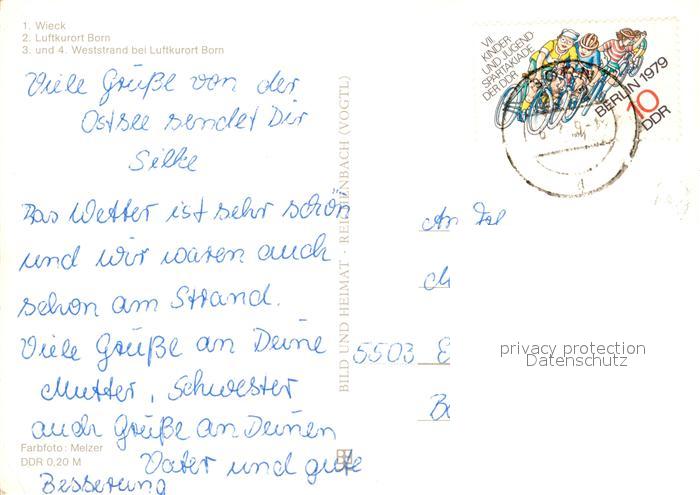 1. Wieck
2. Luftkurort Born
3. und 4. Weststrand bei Luftkurort Born
Viele Grüße von der
Ostsee sendet Dir
Silke
Das Wetter ist sehr schön
und wir waren auch
schon am Strand.
Viele Grüße an Deine
Mutter, Schwester
auch Grüße an Deinen
Vater und gute
Besserung
Farbfoto: Melzer
DDR 0,20 M
BILD UND HEIMAT · REICHENBACH (VOGTL)
VII.
KINDER-
UND JUGEND-
SPARTAKIADE
DER DDR
BERLIN 1979
10
DDR
BORN
An
5503 E
privacy protection
Datenschutz